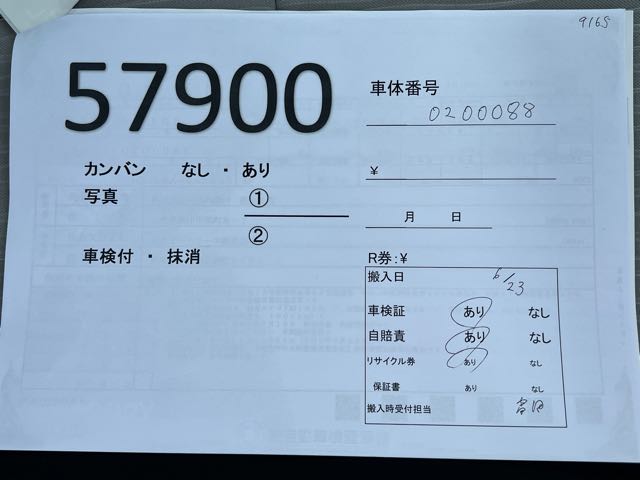 9165
57900
車体番号
0200088
カンバン なし ・ あり
¥
写真 ①
月 日
②
車検付 ・ 抹消
R券:¥
搬入日 6/23
車検証 あり なし
自賠責 あり なし
リサイクル券 あり なし
保証書 あり なし
搬入時受付担当